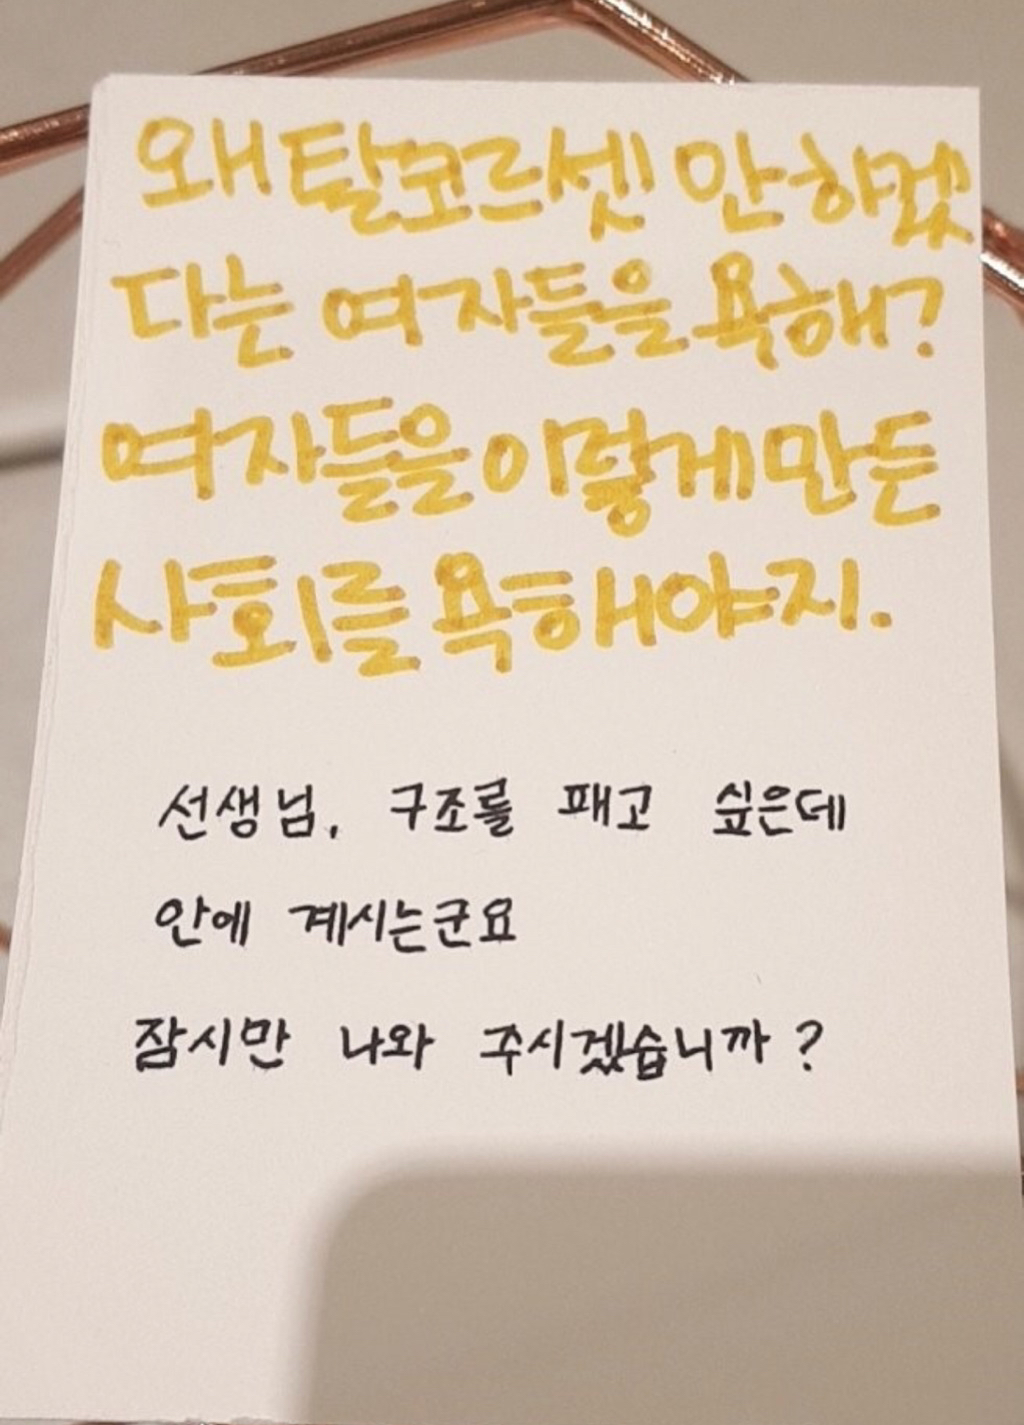 왜 탈코르셋 안 하겠
다는 여자들을 욕해?
여자들을 이렇게 만든
사회를 욕해야지.
선생님, 구조를 패고 싶은데
안에 계시는군요
잠시만 나와 주시겠습니까?